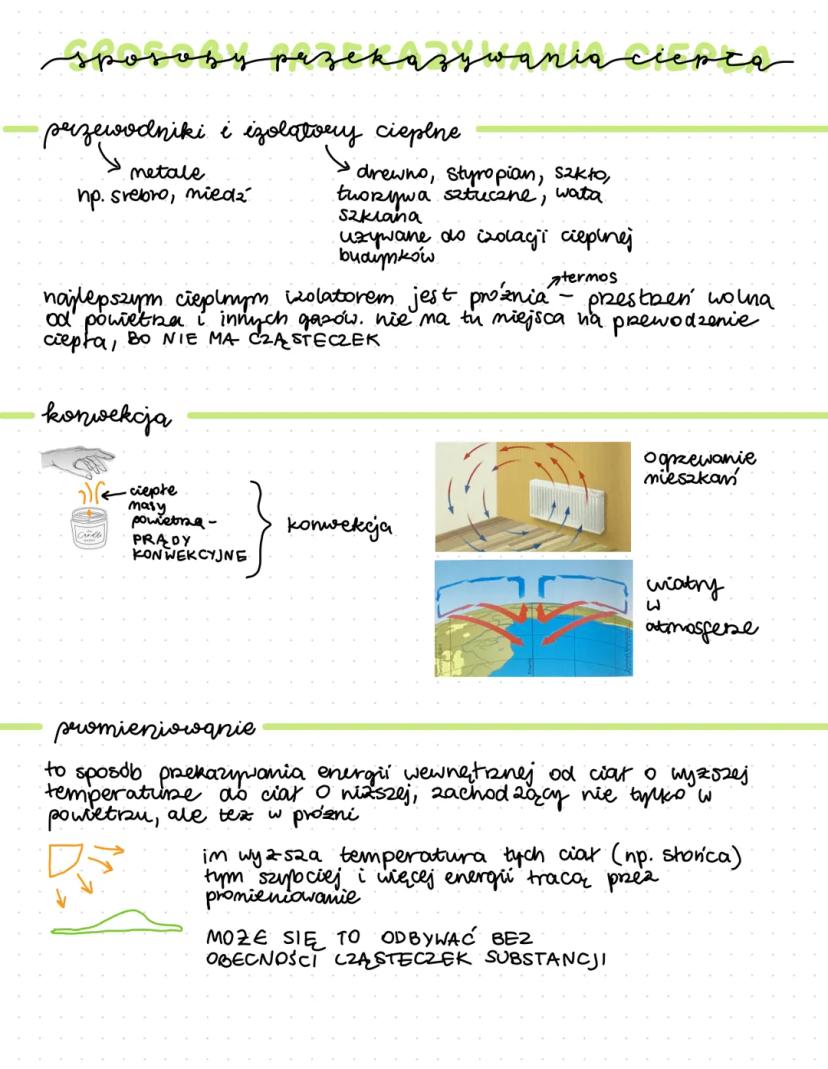 SPOSOBY PRZEKAZYWANIA CIEPŁA
sposoby przekazywania ciepła
przewodniki i izolatory cieplne
metale
np. srebro, miedź
drewno, styropian, szkło,
tworzywa sztuczne, wata
szklana
używane do izolacji cieplnej
budynków
termos
najlepszym cieplnym izolatorem jest próżnia – przestrzeń wolna
od powietrza i innych gazów. nie ma tu miejsca na przewodzenie
ciepła, BO NIE MA CZĄSTECZEK
konwekcja
ciepłe
masy
powietrza -
PRĄDY
KONWEKCYJNE
konwekcja
Candle
ogrzewanie
mieszkań
wiatry
w
atmosferze
promieniowanie
to sposób przekazywania energii wewnętrznej od ciał o wyższej
temperaturze do ciał o niższej, zachodzący nie tylko w
powietrzu, ale też w próżni
im wyższa temperatura tych ciał (np. słońca)
tym szybciej i więcej energii tracą przez
promieniowanie
MOŻE SIĘ TO ODBYWAĆ BEZ
OBECNOŚCI CZĄSTECZEK SUBSTANCJI